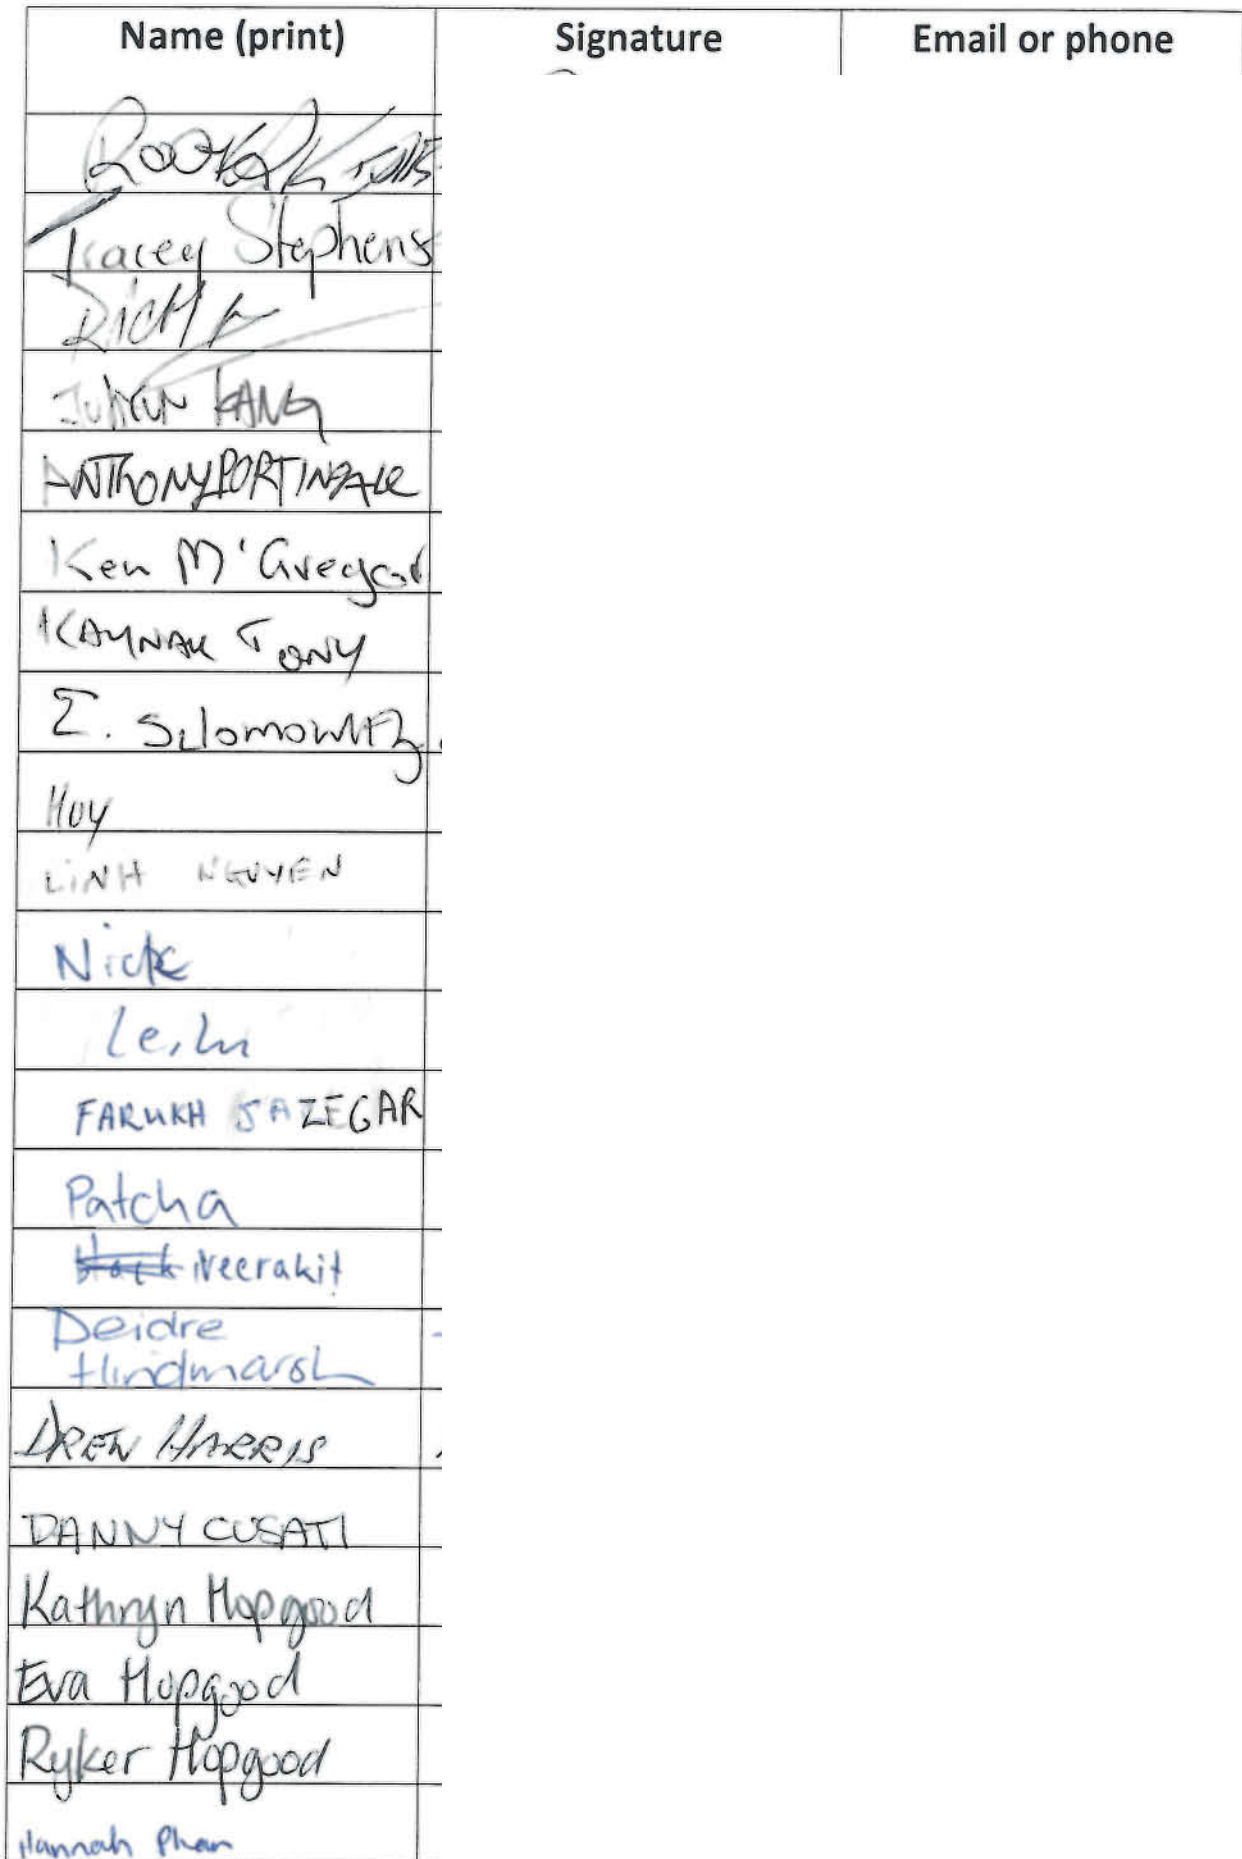 Name (print) Signature Email or phone
Tracey Stephens
KANG
ANTHONY PORTINZALE
Ken M'Gregor
KAYNAK TONY
E. Szlomowitz
Huy
LiNH NGUYEN
Nick
FARUKH SAZEGAR
Patcha
Neerakit
Deidre
Hindmarsh
DREW HARRIS
DANNY CUSATI
Kathryn Hopgood
Eva Hopgood
Ryker Hopgood
Hannah Phan